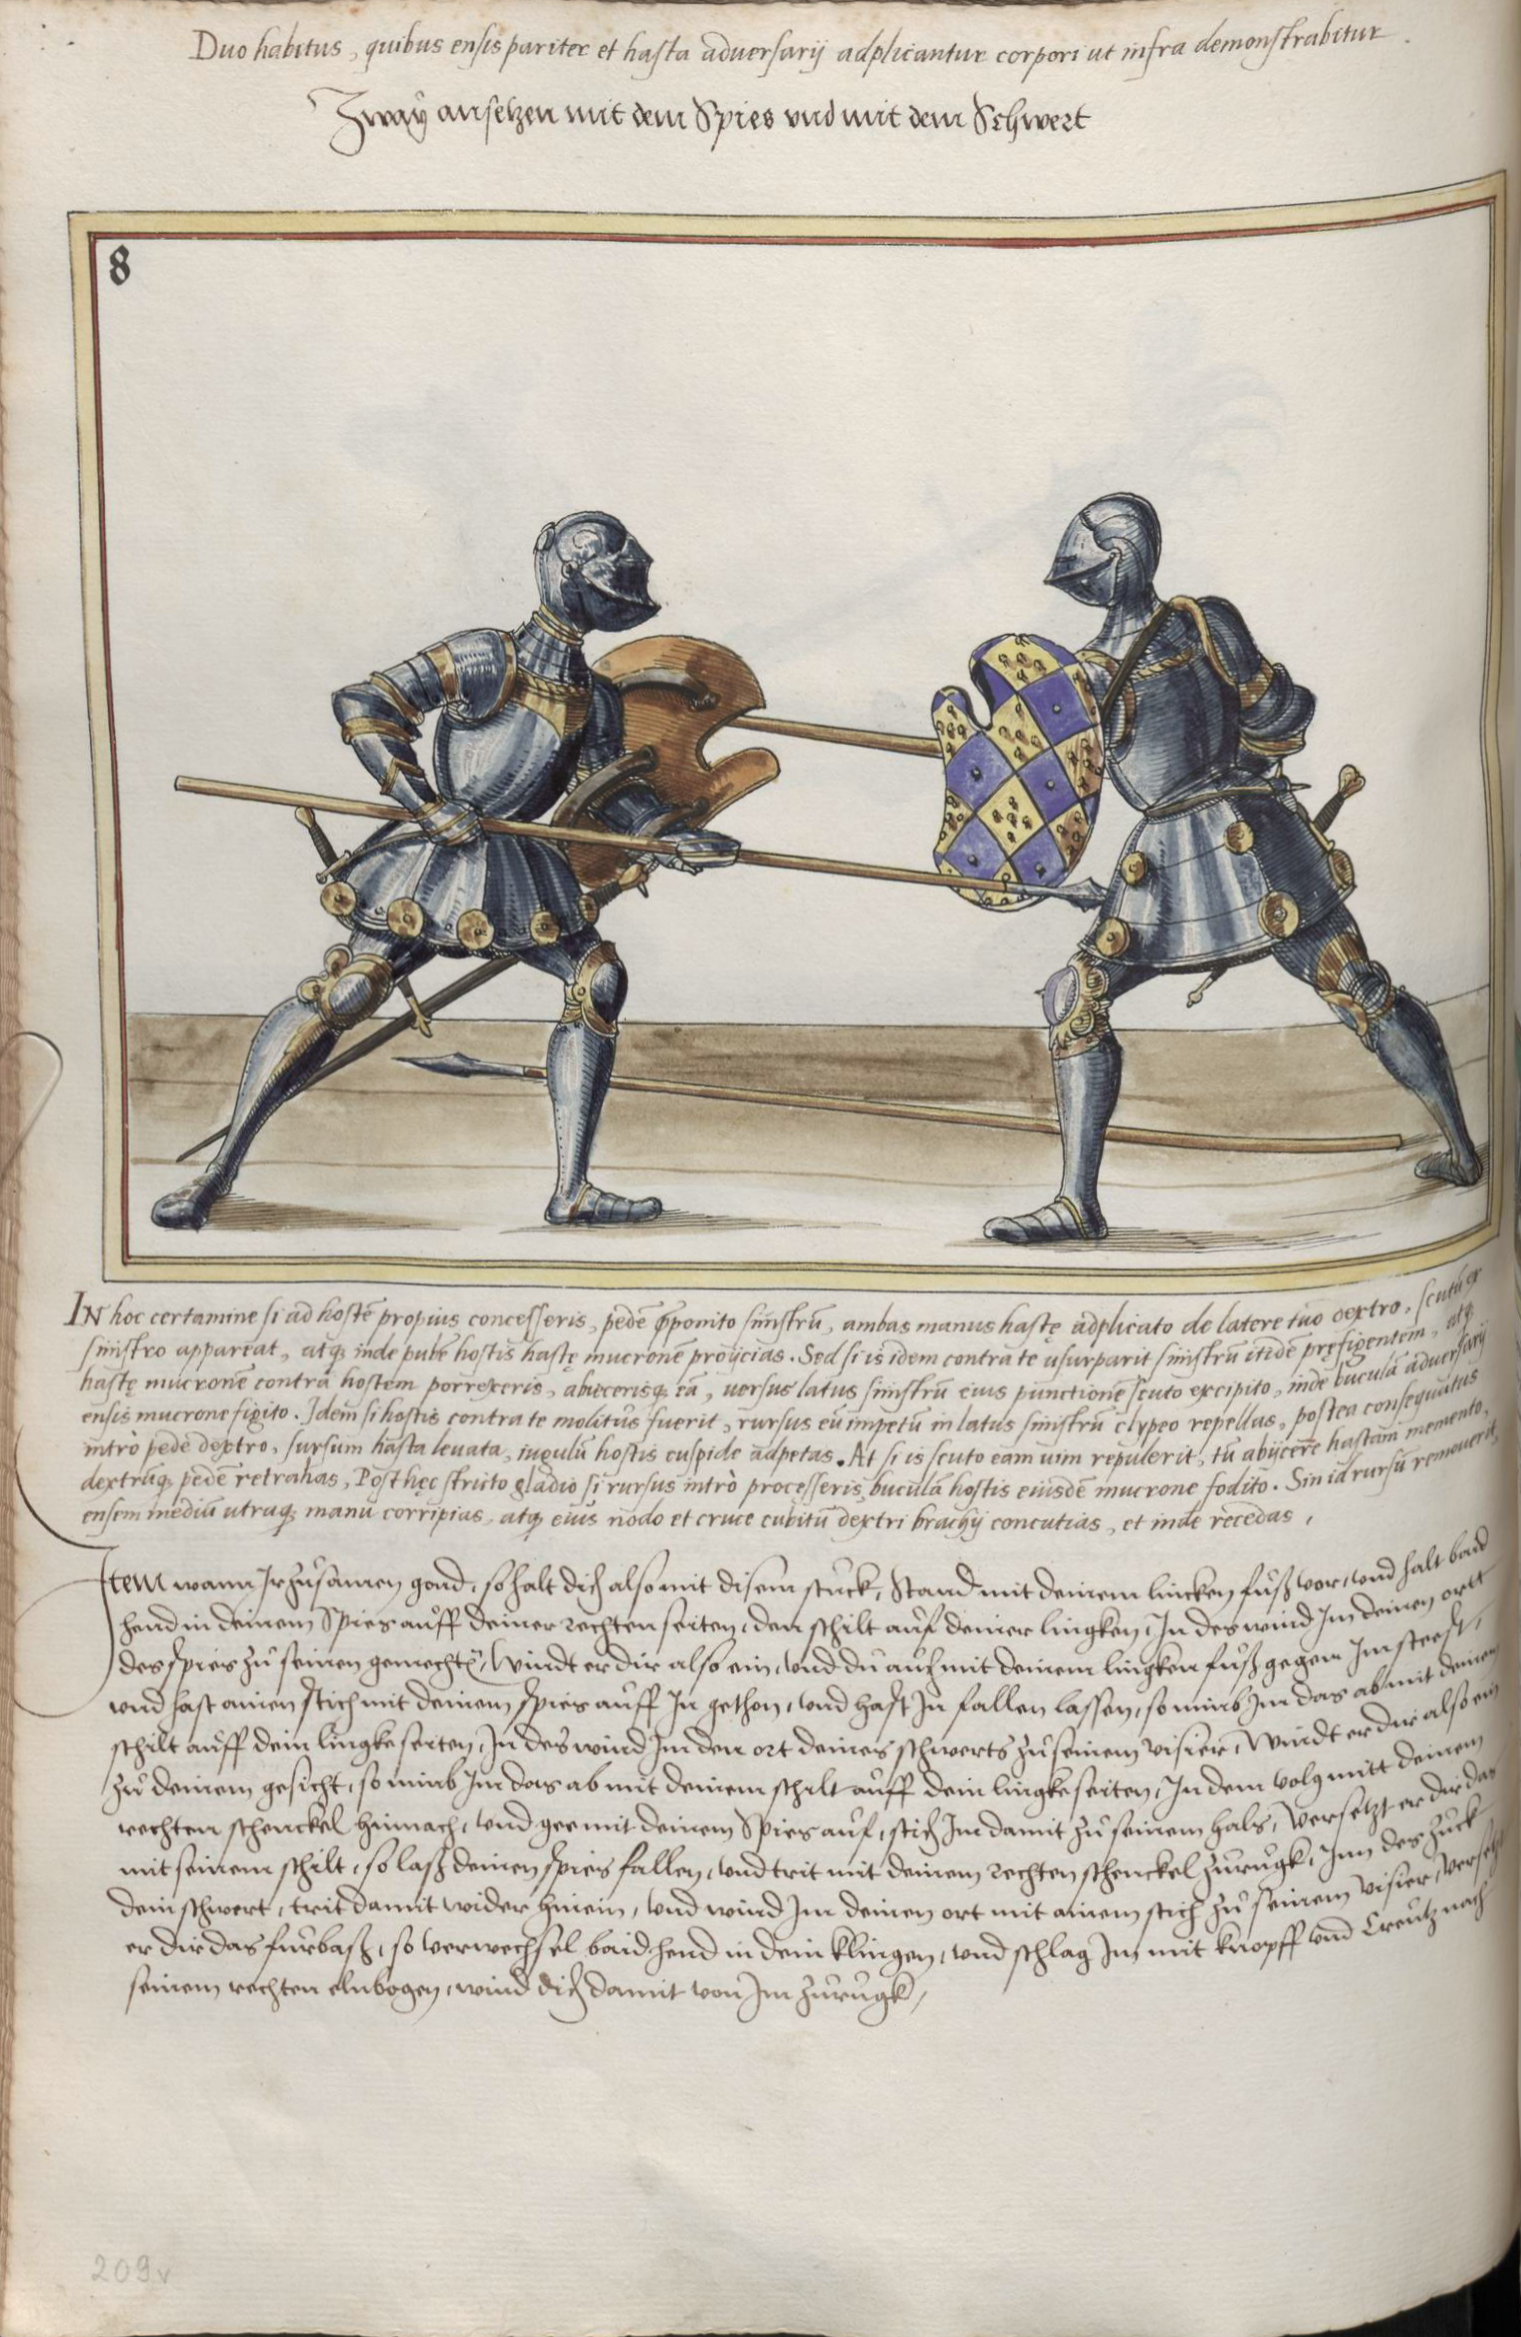 Duo habitus, quibus ensis pariter et hasta adversarij adplicantur corpori ut infra demonstrabitur.
Zway ansetzen mit dem Spies vnd mit dem Schwert
8
IN hoc certamine si ad hostē propius concesseris, pedē p̄ponito sinistrū, ambas manus hastę adplicato de latere tuo dextro, scutū ex
sinistro appareat, atq; inde pubē hostis hastę mucronē proijcias. Sed si is idem contra te usurparit sinistrū itidē pręfigentem, atq;
hastę mucronē contra hostem porrexeris, abiecerisq; eā, uersus latus sinistrū eius punctionē scuto excipito, inde buculā aduersarij
ensis mucrone figito. Idem si hostis contra te molitus fuerit, rursus eū impetū in latus sinistrū clypeo repellas, postea consequutus
intrò pede dextro, sursum hasta leuata, iugulū hostis cuspide adpetas. At si is scuto eam uim repulerit, tū abijcere hastam memento,
dextrūq; pedē retrahas, Post hęc stricto gladio si rursus intrò processeris, buculā hostis eiusdē mucrone fodito. Sin id rursū remouerit,
ensem mediū utraq; manu corripias, atq; eius nodo et cruce cubitū dextri brachij concutias, et inde recedas,
Item wann Ir zůsamen gond, so halt dich also mit disem stuck, Stand mit deinem lincken fůß vor, vnd halt baid
hend in deinem Spies auff deiner rechten seiten, den schilt auf deiner lingken, In des wind Im deinen ortt
des spies zů seinen gemechtē, Windt er dir also ein, vnd du auch mit deinem lingken fůß gegen Im steest,
vnd hast ainen stich mit deinem spies auff In gethon, vnd hast In fallen lassen, so nimb Im das ab mit deinem
schilt auff dein lingke seiten, In des wind Im den ort deines schwerts zů seinem visier, Windt er dir also ein
zů deinem gesicht, so nimb Im das ab mit deinem schilt auff dein lingke seiten, In dem volg mitt deinem
rechten schenckel hinnach, vnd gee mit deinem Spies auf, stich Im damit zů seinem hals, Versetzt er dir das
mit seinem schilt, so laß deinen spies fallen, vnd trit mit deinem rechten schenckel zůrugk, Inn des zuck
dein schwert, trit damit wider hinein, vnd wind Im deinen ort mit ainem stich zů seinem visier, Versetzt
er dir das fůrbaß, so verwechsel baid hend in dein klingen, vnd schlag Im mit knopff vnd Creutz nach
seinem rechten elnbogen, wind dich damit von Im zůrugk,
209v